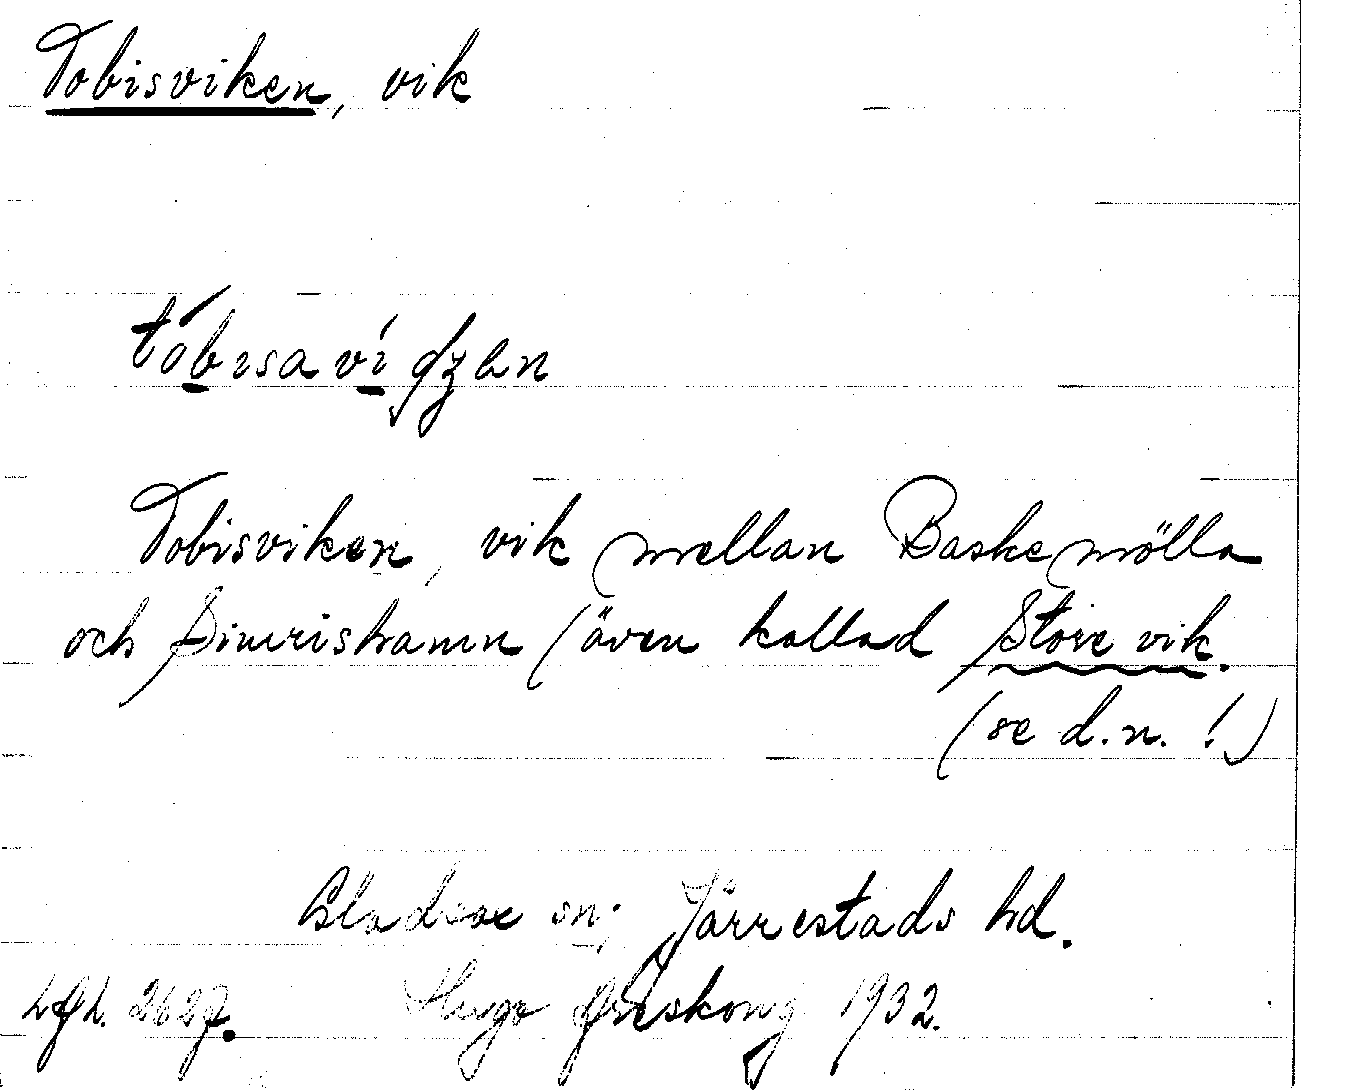 Tobisviken, vik
tóbisa ví ɡʒan
Tobisviken, vik mellan Baskemölla
och Simrishamn (även kallad Store vik.
(se d.n.!)
Gladsax sn; Järrestads hd.
Hugo 1932.